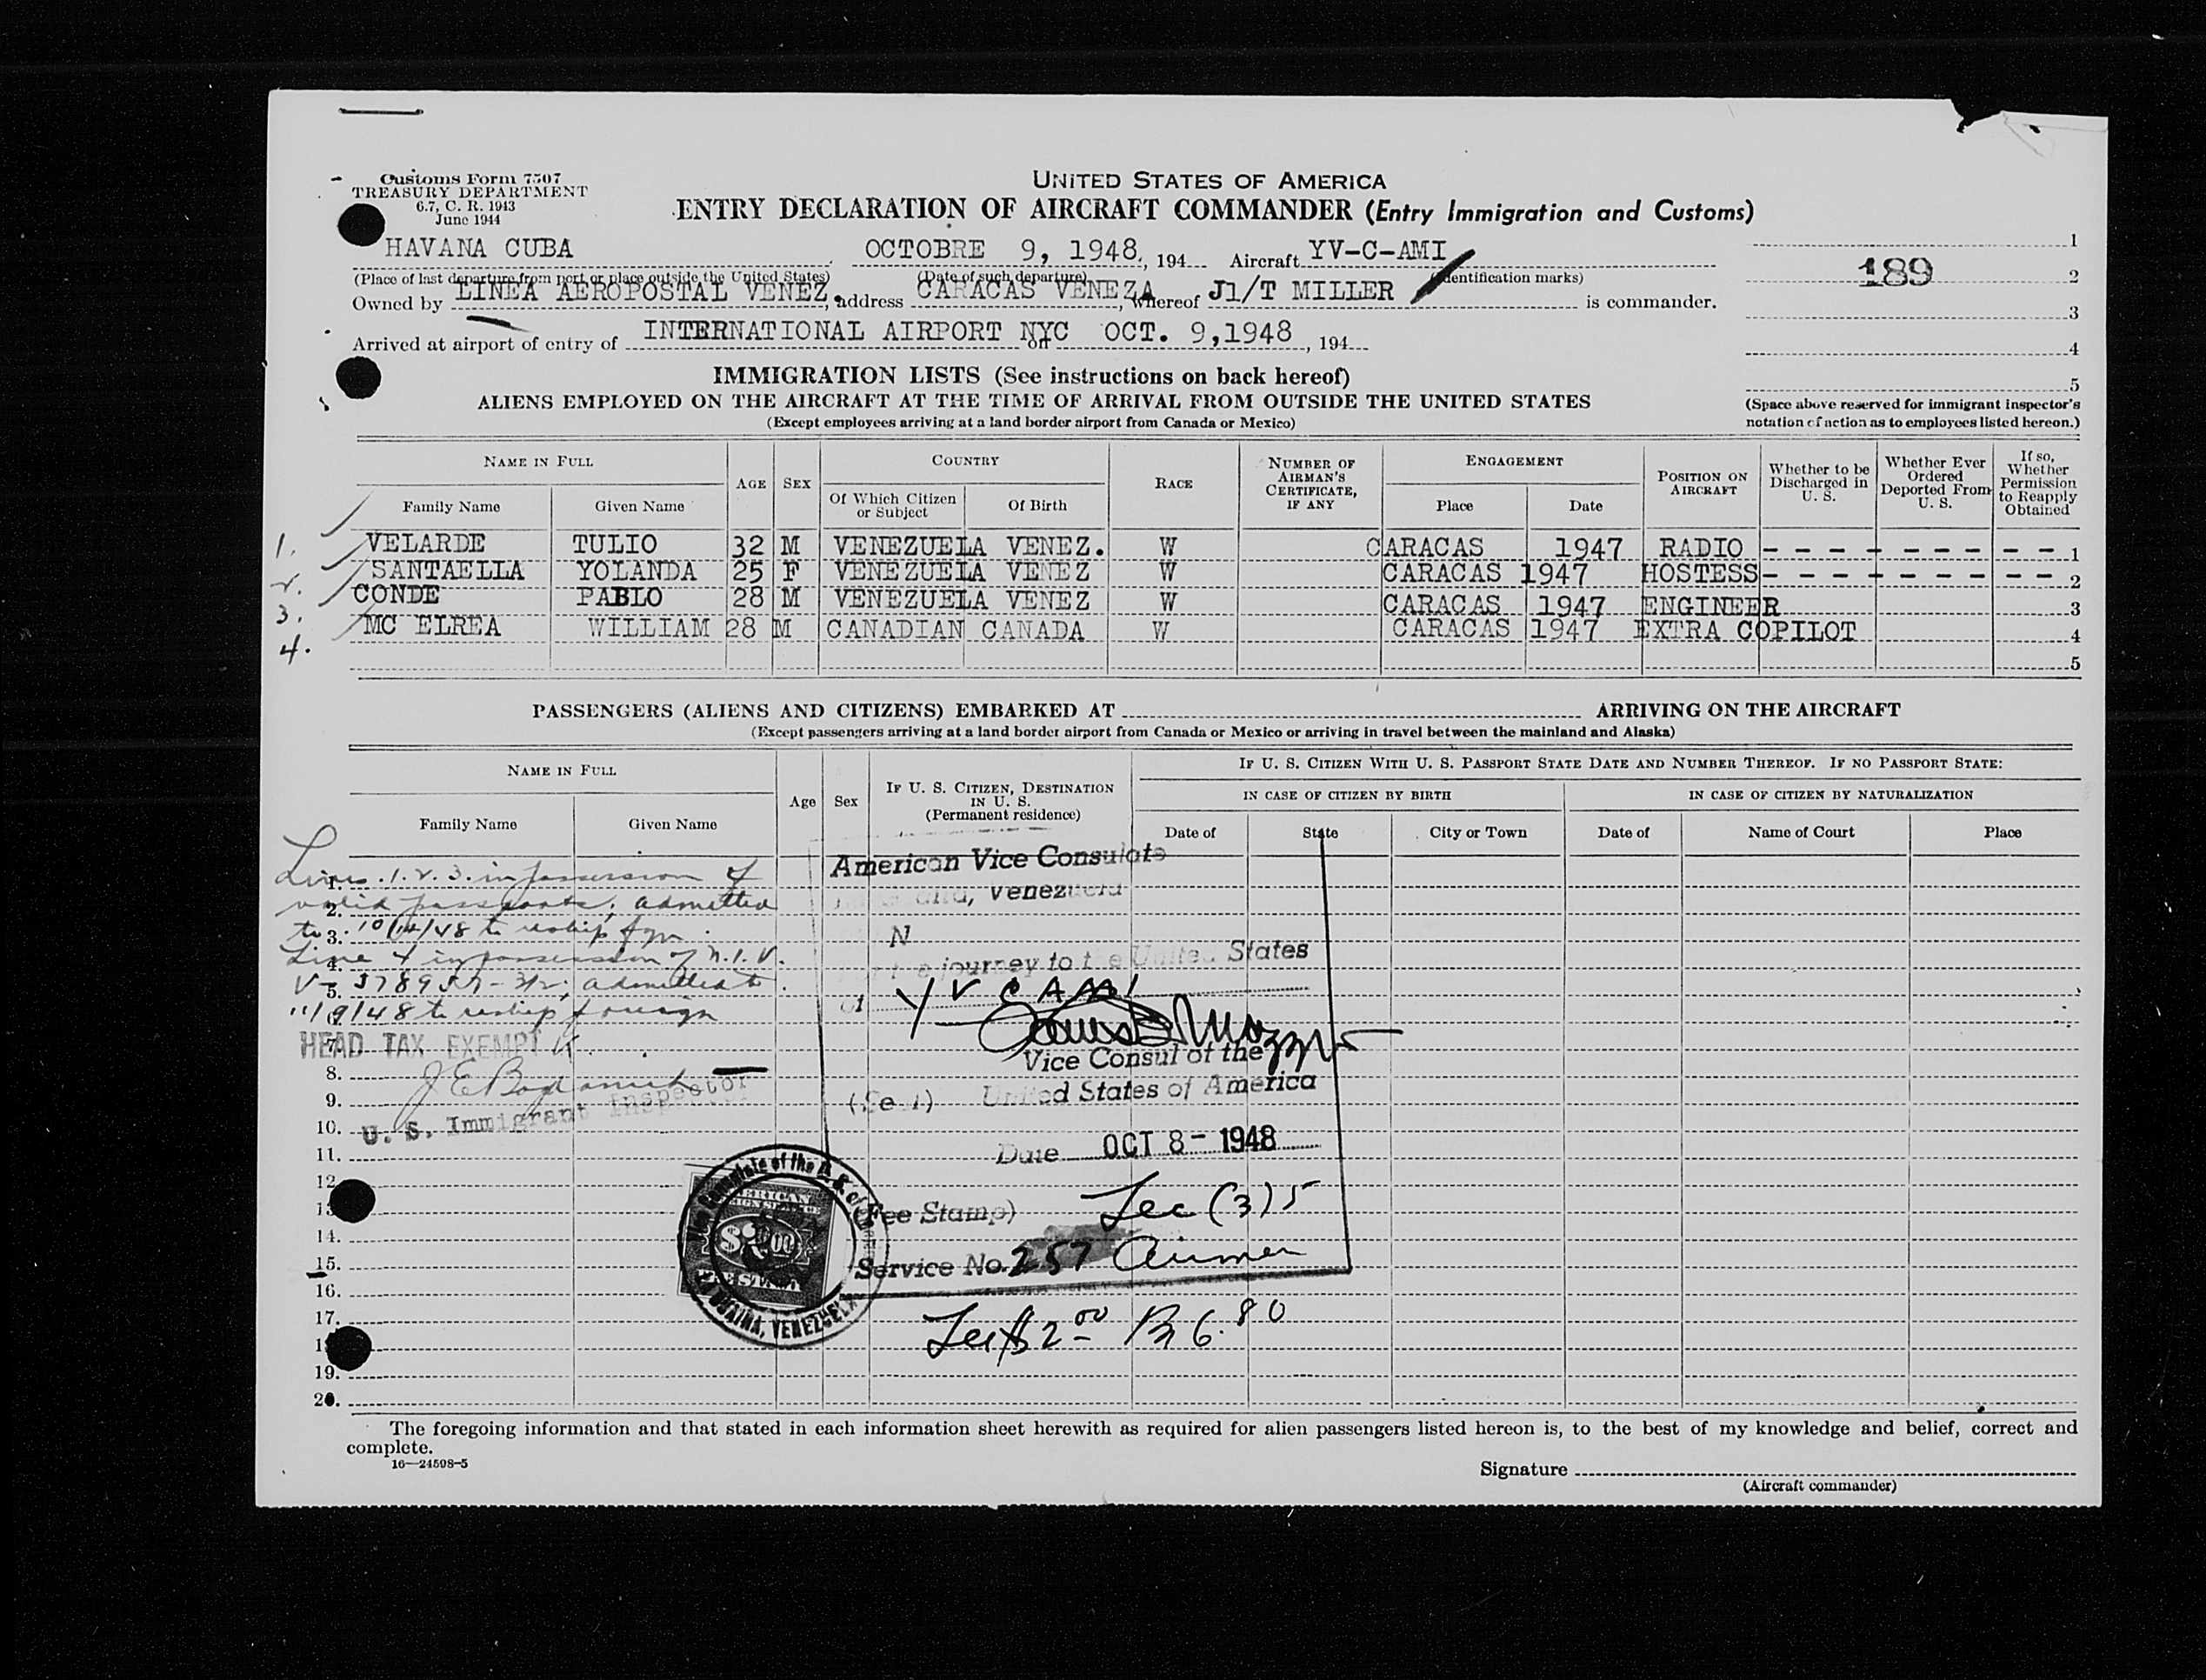 Customs Form 7507
TREASURY DEPARTMENT
6.7, C. R. 1943
June 1944
UNITED STATES OF AMERICA
ENTRY DECLARATION OF AIRCRAFT COMMANDER (Entry Immigration and Customs)
HAVANA CUBA OCTOBRE 9, 1948, 194 Aircraft YV-C-AMI
(Place of last departure from port or place outside the United States) (Date of such departure) (Identification marks)
Owned by LINEA AEROPOSTAL VENEZ, address CARACAS VENEZA, whereof J1/T MILLER is commander.
Arrived at airport of entry of INTERNATIONAL AIRPORT NYC on OCT. 9,1948, 194
1
189 2
3
4
5
(Space above reserved for immigrant inspector's
notation of action as to employees listed hereon.)
IMMIGRATION LISTS (See instructions on back hereof)
ALIENS EMPLOYED ON THE AIRCRAFT AT THE TIME OF ARRIVAL FROM OUTSIDE THE UNITED STATES
(Except employees arriving at a land border airport from Canada or Mexico)
NAME IN FULL AGE SEX COUNTRY RACE NUMBER OF AIRMAN'S CERTIFICATE, IF ANY ENGAGEMENT POSITION ON AIRCRAFT Whether to be Discharged in U. S. Whether Ever Ordered Deported From U. S. If so, Whether Permission to Reapply Obtained
Family Name Given Name Of Which Citizen or Subject Of Birth Place Date
1. VELARDE TULIO 32 M VENEZUELA VENEZ. W CARACAS 1947 RADIO - - - - - - - - - - 1
2. SANTAELLA YOLANDA 25 F VENEZUELA VENEZ W CARACAS 1947 HOSTESS - - - - - - - - - - 2
3. CONDE PABLO 28 M VENEZUELA VENEZ W CARACAS 1947 ENGINEER 3
4. MC ELREA WILLIAM 28 M CANADIAN CANADA W CARACAS 1947 EXTRA COPILOT 4
5
PASSENGERS (ALIENS AND CITIZENS) EMBARKED AT ARRIVING ON THE AIRCRAFT
(Except passengers arriving at a land border airport from Canada or Mexico or arriving in travel between the mainland and Alaska)
NAME IN FULL Age Sex IF U. S. CITIZEN, DESTINATION IN U. S. (Permanent residence) IF U. S. CITIZEN WITH U. S. PASSPORT STATE DATE AND NUMBER THEREOF. IF NO PASSPORT STATE:
IN CASE OF CITIZEN BY BIRTH IN CASE OF CITIZEN BY NATURALIZATION
Family Name Given Name Date of State City or Town Date of Name of Court Place
Lines 1. 2. 3. in possession of
valid passports; admitted
to 10/ /48 to reship fgn.
Line 4 in possession of N.I.V.
admitted to
11/9/48 to reship foreign
HEAD TAX EXEMPT
U. S. Immigrant Inspector
1.
2.
3.
4.
5.
7.
8.
9.
10.
11.
12.
13
14.
15.
16.
17.
19.
20.
American Vice Consulate
Venezuela
N
journey to the United States
of YV C AMI
Vice Consul of the
United States of America
(Seal)
Date OCT 8 - 1948
(Fee Stamp) Sec (3) 5
Service No. 257 Airmen
Fee $2 00 Bs 6.80
Vice Consulate of the U. S. of
AMERICAN
FOREIGN SERVICE
$2.00
FEE STAMP
LA GUAIRA, VENEZUELA
The foregoing information and that stated in each information sheet herewith as required for alien passengers listed hereon is, to the best of my knowledge and belief, correct and
complete.
16—24598-5
Signature
(Aircraft commander)